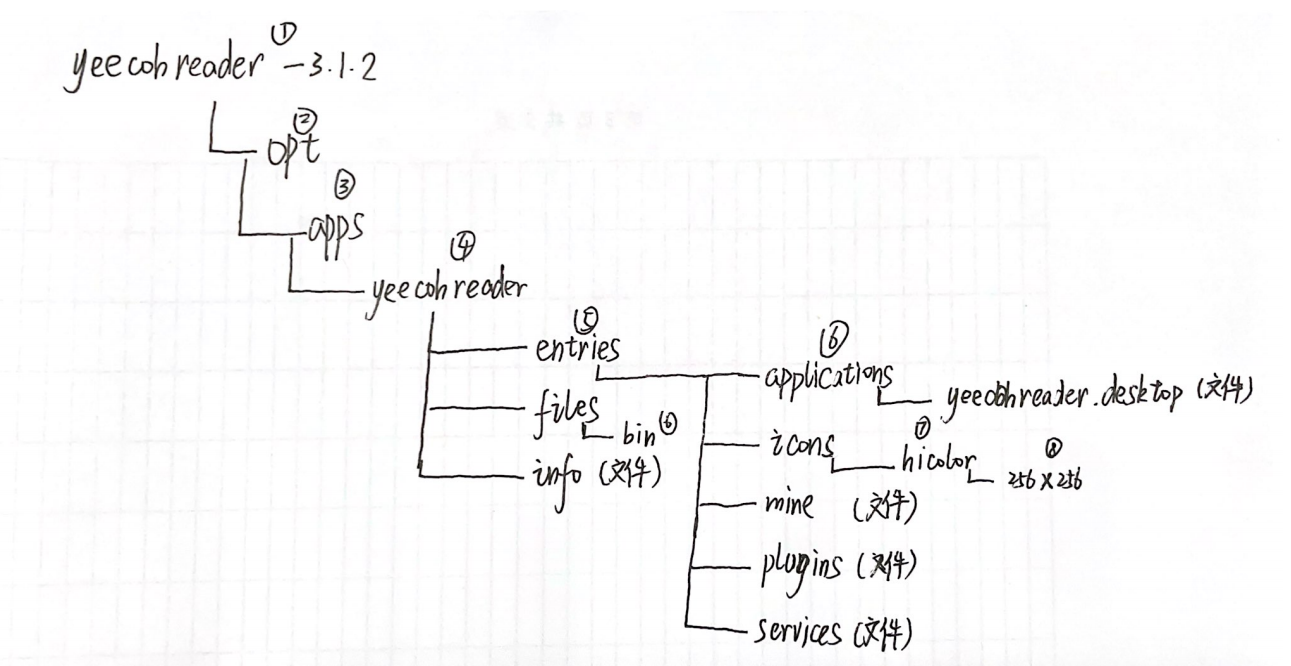 yeecohreader ① -3.1.2
② opt
③ apps
④ yeecohreader
⑤ entries
⑥ applications
yeecohreader.desktop (文件)
files
bin ⑥
icons
⑦ hicolor
⑧ 256×256
info (文件)
mine (文件)
plugins (文件)
services (文件)